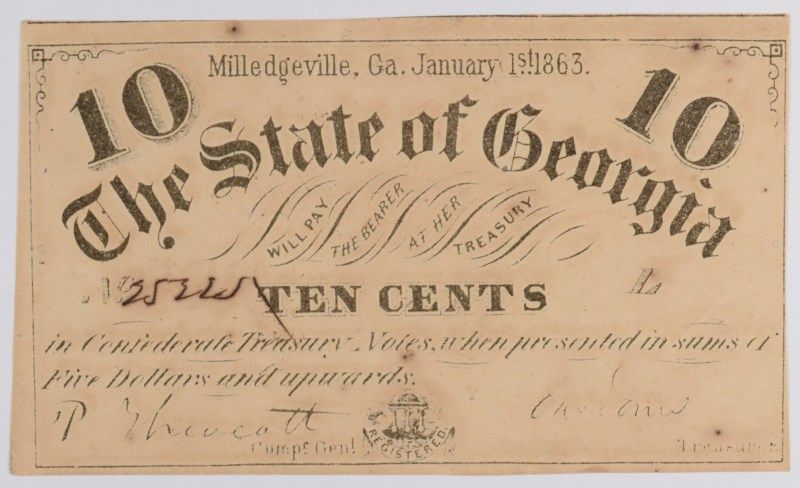 Milledgeville, Ga. January 1st 1863.
10 10
The State of Georgia
WILL PAY THE BEARER AT HER TREASURY
No L
TEN CENTS
in Confederate Treasury Notes, when presented in sums of
Five Dollars and upwards.
P Thweatt
Compt. Genl. REGISTERED. Treasurer